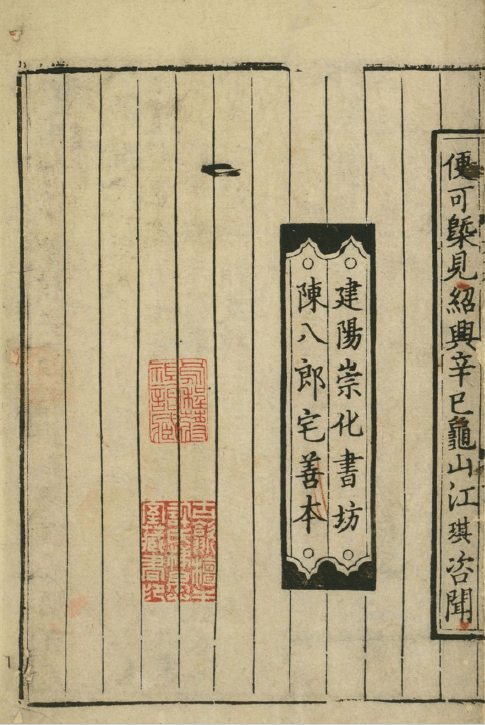 便可槩見紹興辛巳龜山江琪咨聞
建陽崇化書坊
陳八郎宅善本